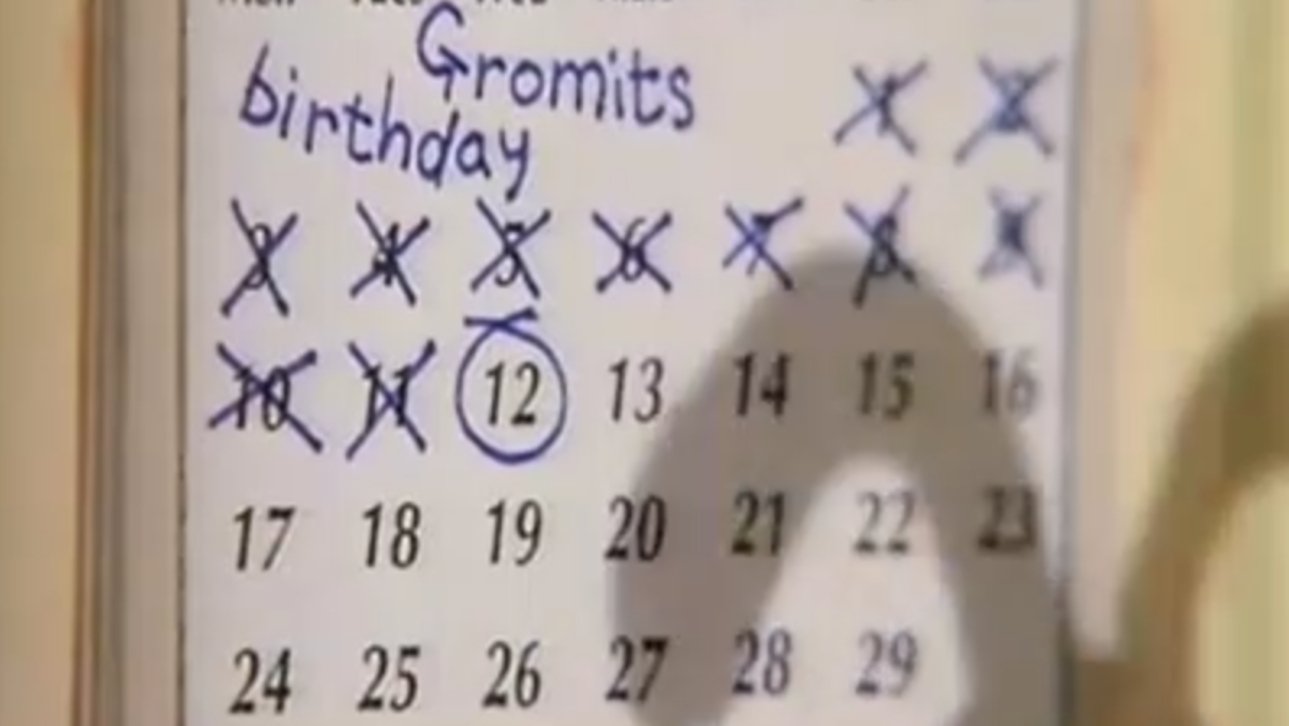 Gromits
birthday
1 2
3 4 5 6 7 8
10 11 12 13 14 15 16
17 18 19 20 21 22 23
24 25 26 27 28 29